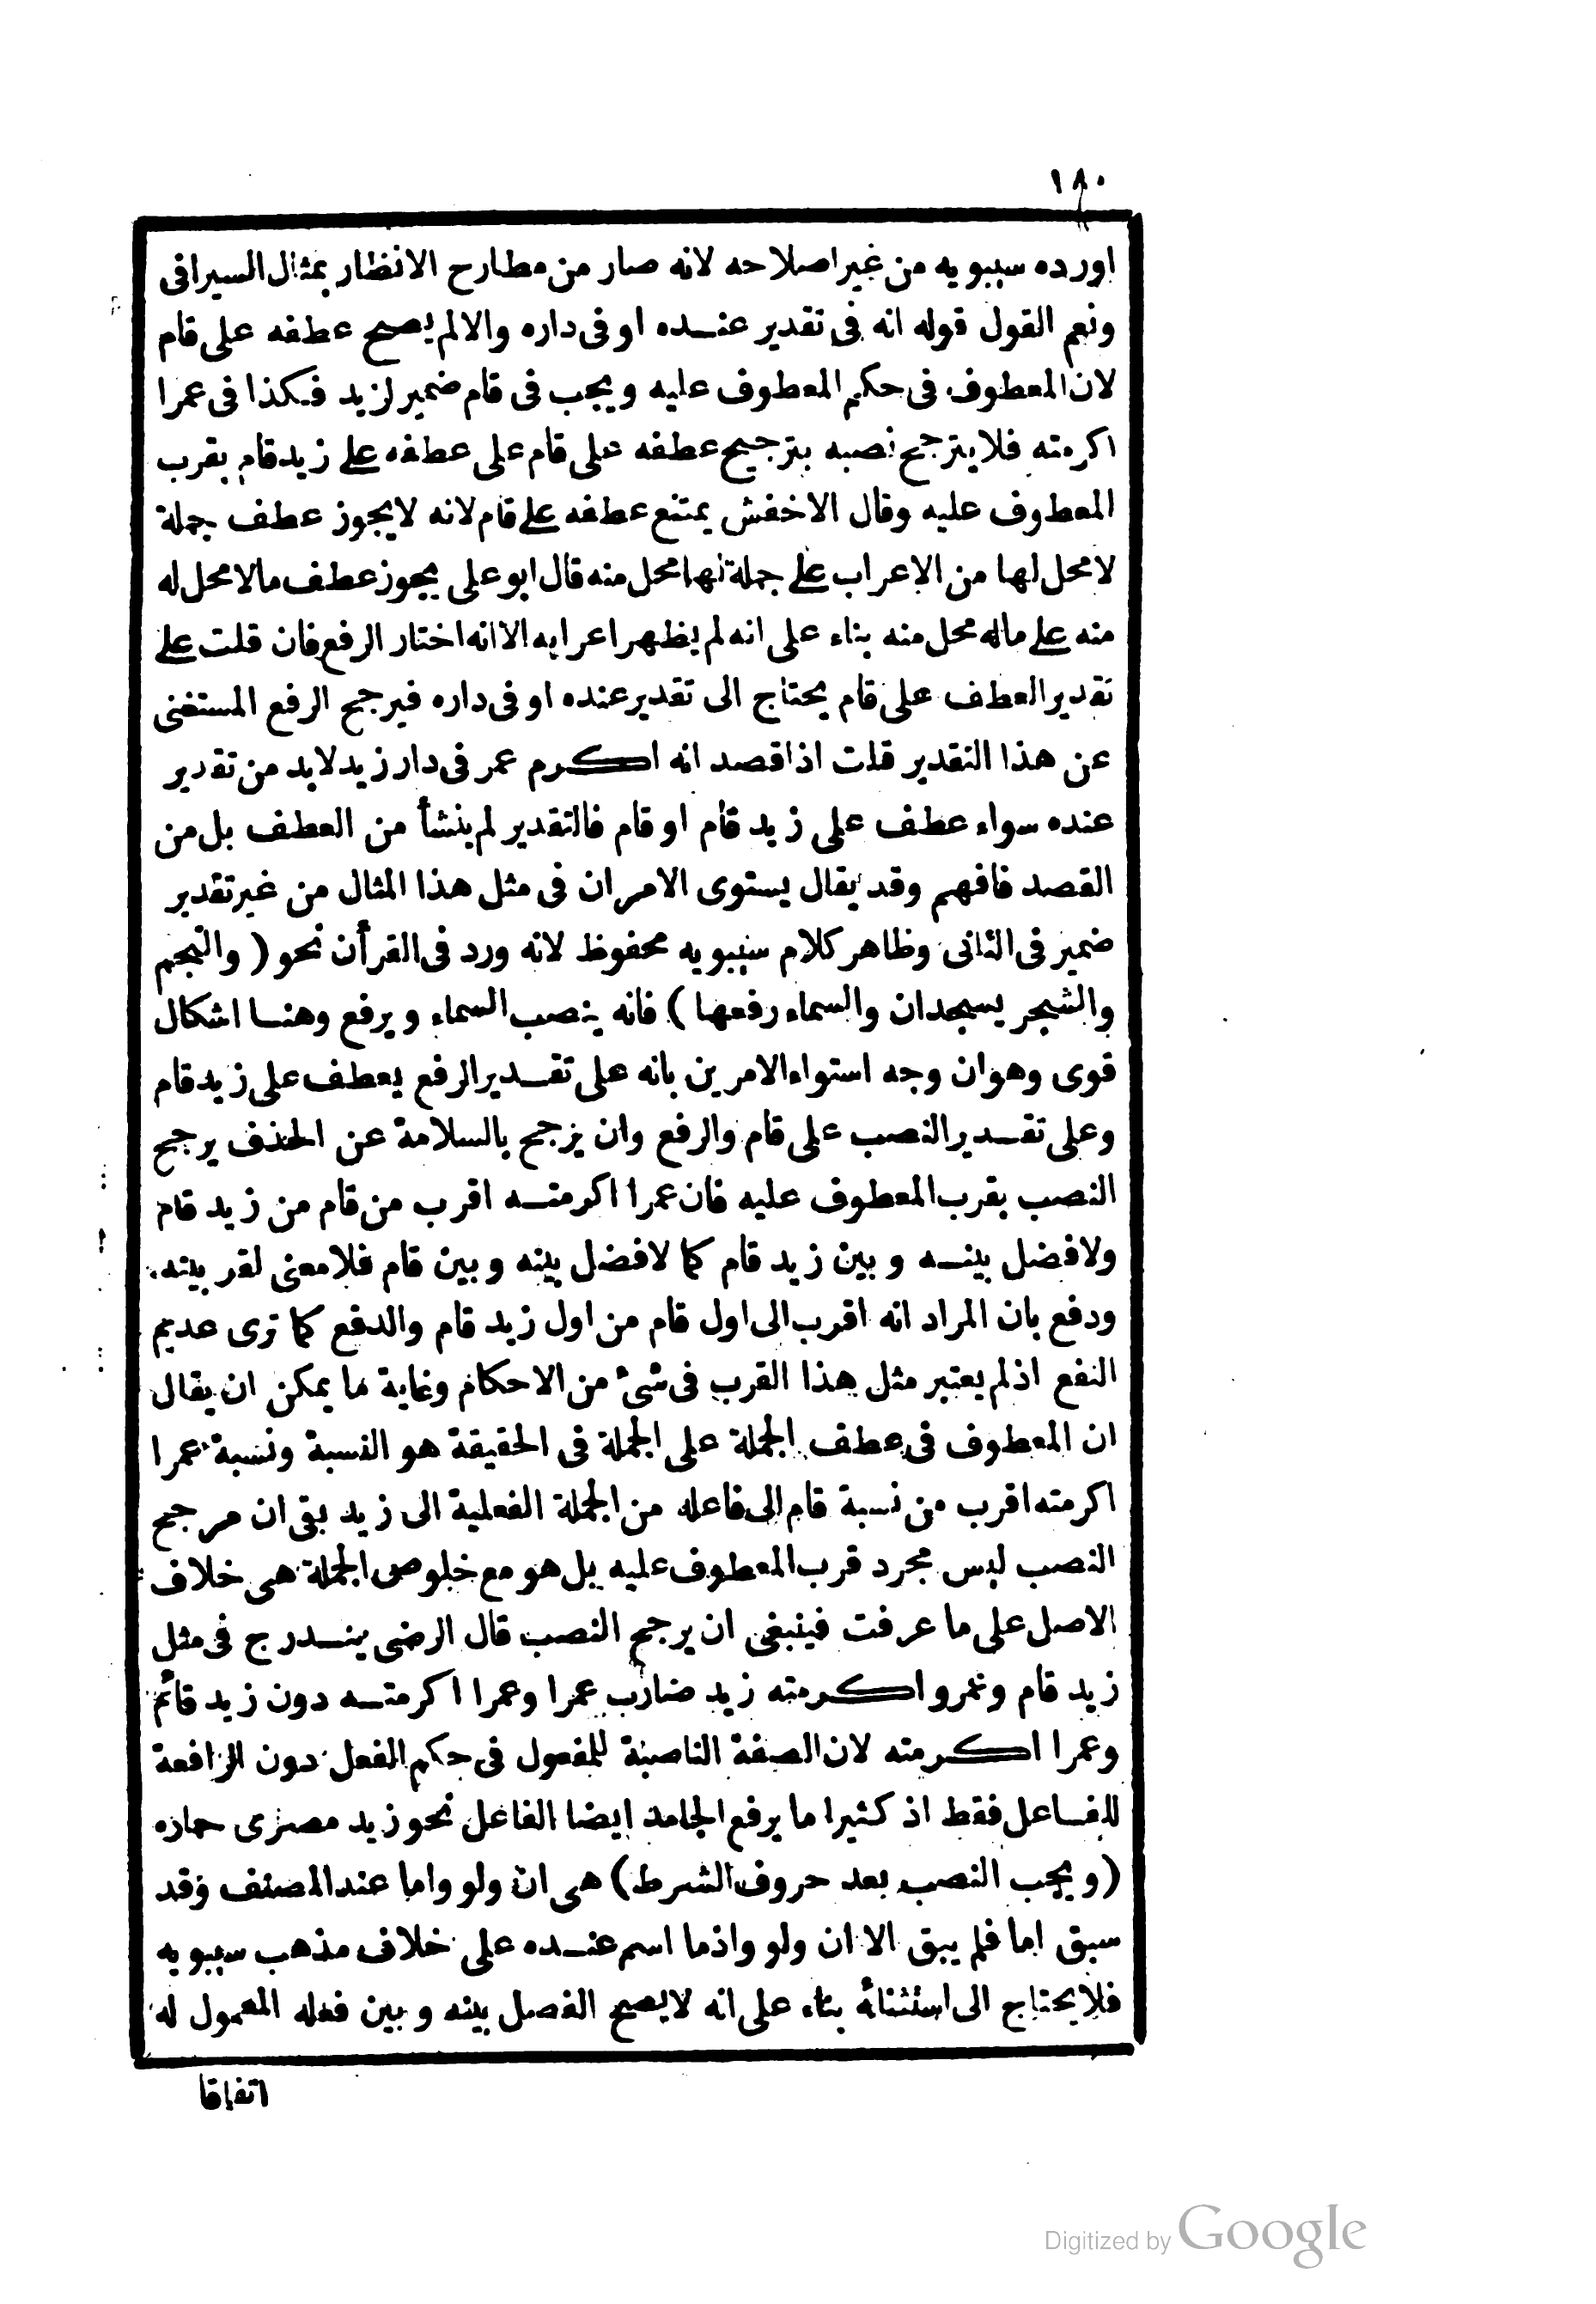 ١٨٠
اورده سيبويه من غير اصلاحه لانه صار من مطارح الانظار بمثال السيرافى
ونعم القول قوله انه فى تقدير عنده او فى داره والا لم يصح عطفه على قام
لان المعطوف فى حكم المعطوف عليه ويجب فى قام ضمير لزيد فكذا فى عمرا
اكرمته فلا يترجح نصبه بترجيح عطفه على قام على عطفه على زيد قام بقرب
المعطوف عليه وقال الاخفش يمتنع عطفه على قام لانه لا يجوز عطف جملة
لا محل لها من الاعراب على جملة لها محل منه قال ابو على يجوز عطف مالا محل له
منه على ماله محل منه بناء على انه لم يظهر اعرابه الا انه اختار الرفع فان قلت على
تقدير العطف على قام يحتاج الى تقدير عنده او فى داره فيرجح الرفع المستغنى
عن هذا التقدير قلت اذا قصد انه اكرم عمر فى دار زيد لابد من تقدير
عنده سواء عطف على زيد قام او قام فالتقدير لم ينشأ من العطف بل من
القصد فافهم وقد يقال يستوى الامران فى مثل هذا المثال من غير تقدير
ضمير فى الثانى وظاهر كلام سيبويه محفوظ لانه ورد فى القرأن نحو ( والنجم
والشجر يسجدان والسماء رفعها ) فانه ينصب السماء ويرفع وهنا اشكال
قوى وهو ان وجه استواء الامرين بانه على تقدير الرفع يعطف على زيد قام
وعلى تقدير النصب على قام والرفع وان يرجح بالسلامة عن الحذف يرجح
النصب بقرب المعطوف عليه فان عمرا اكرمته اقرب من قام من زيد قام
ولا فضل بينه وبين زيد قام كما لا فضل بينه وبين قام فلا معنى لقربيته
ودفع بان المراد انه اقرب الى اول قام من اول زيد قام والدفع كما ترى عديم
النفع اذ لم يعتبر مثل هذا القرب فى شئ من الاحكام وغاية ما يمكن ان يقال
ان المعطوف فى عطف الجملة على الجملة فى الحقيقة هو النسبة ونسبة عمرا
اكرمته اقرب من نسبة قام الى فاعله من الجملة الفعلية الى زيد بقى ان مرجح
النصب ليس مجرد قرب المعطوف عليه بل هو مع خلوص الجملة هى خلاف
الاصل على ما عرفت فينبغى ان يرجح النصب قال الرضى يندرج فى مثل
زيد قام وعمرو اكرمته زيد ضارب عمرا وعمرا اكرمته دون زيد قائم
وعمرا اكرمته لان الصفة الناصبة للمفعول فى حكم الفعل دون الرافعة
للفاعل فقط اذ كثيرا ما يرفع الجامد ايضا الفاعل نحو زيد مصرى حماره
(ويجب النصب بعد حروف الشرط) هى ان ولو واما عند المصنف وقد
سبق اما فلم يبق الا ان ولو واذما اسم عنده على خلاف مذهب سيبويه
فلا يحتاج الى استثنائه بناء على انه لا يصح الفصل بينه وبين فعله المعمول له
اتفاقا
Digitized by Google